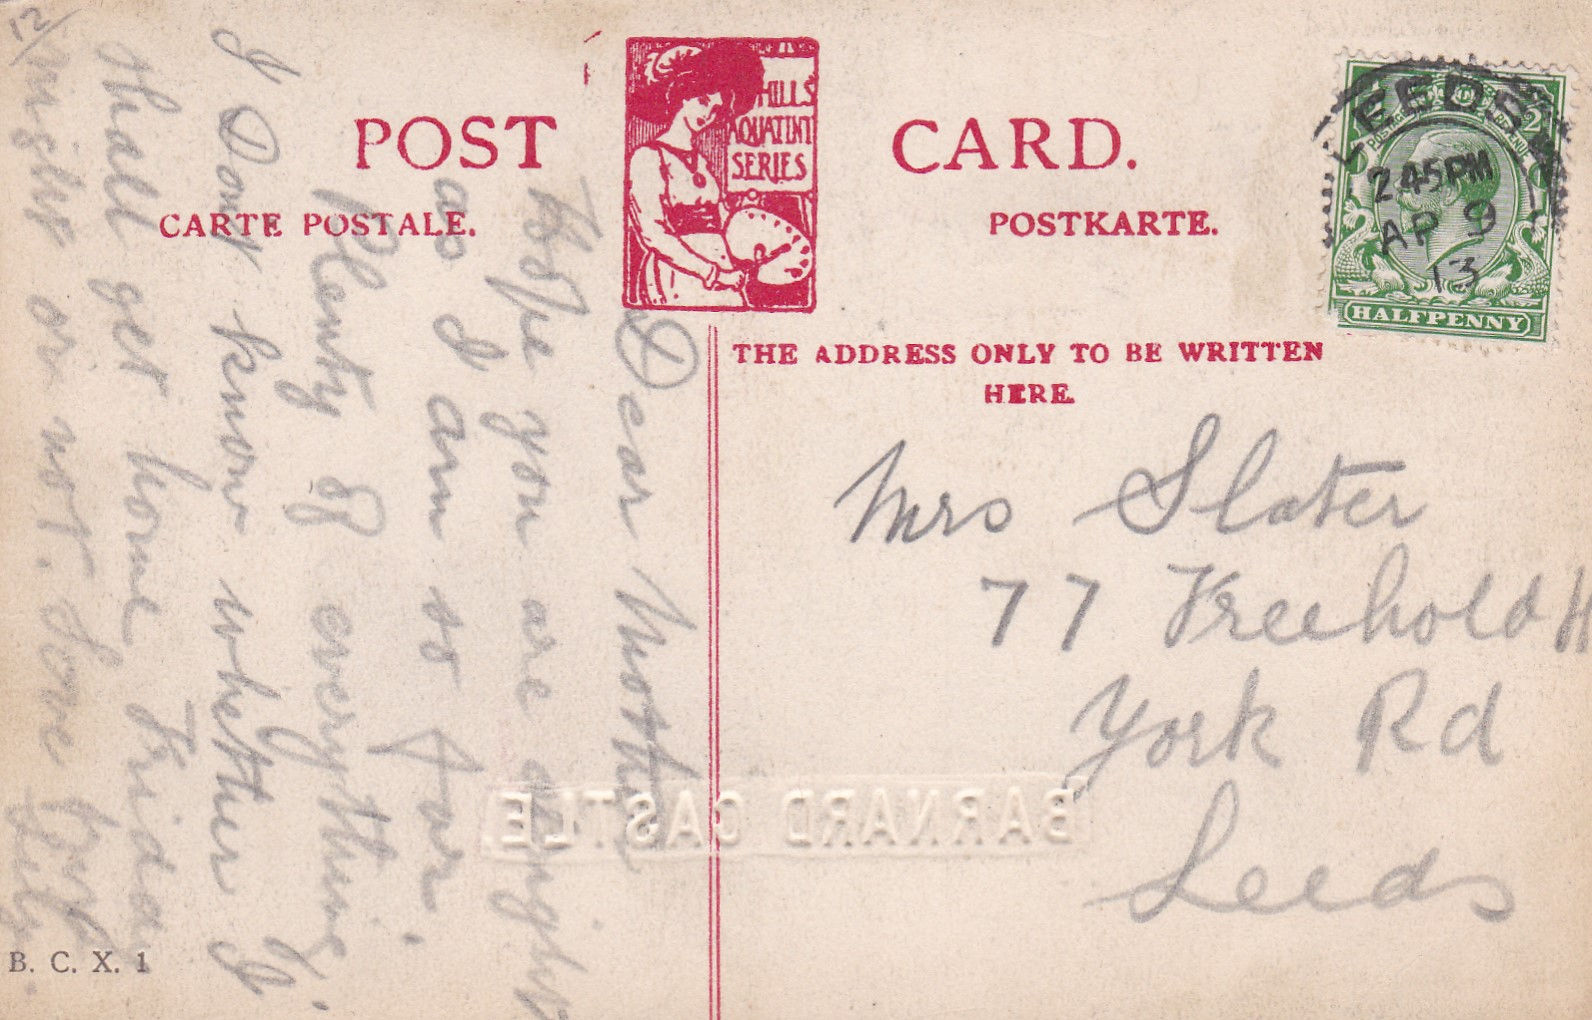 12/
POST CARD.
HILLS
AQUATINT
SERIES
CARTE POSTALE.
POSTKARTE.
THE ADDRESS ONLY TO BE WRITTEN
HERE.
LEEDS
2.45PM
AP 9
13
HALFPENNY
Mrs Slater
77 Freehold
York Rd
Leeds
Dear Mother
Hope you are alright
as I am so far.
Plenty of everything.
I Dont know whether I
shall get home Friday
night or not. Love from
Lily.
BARNARD CASTLE
B. C. X. 1